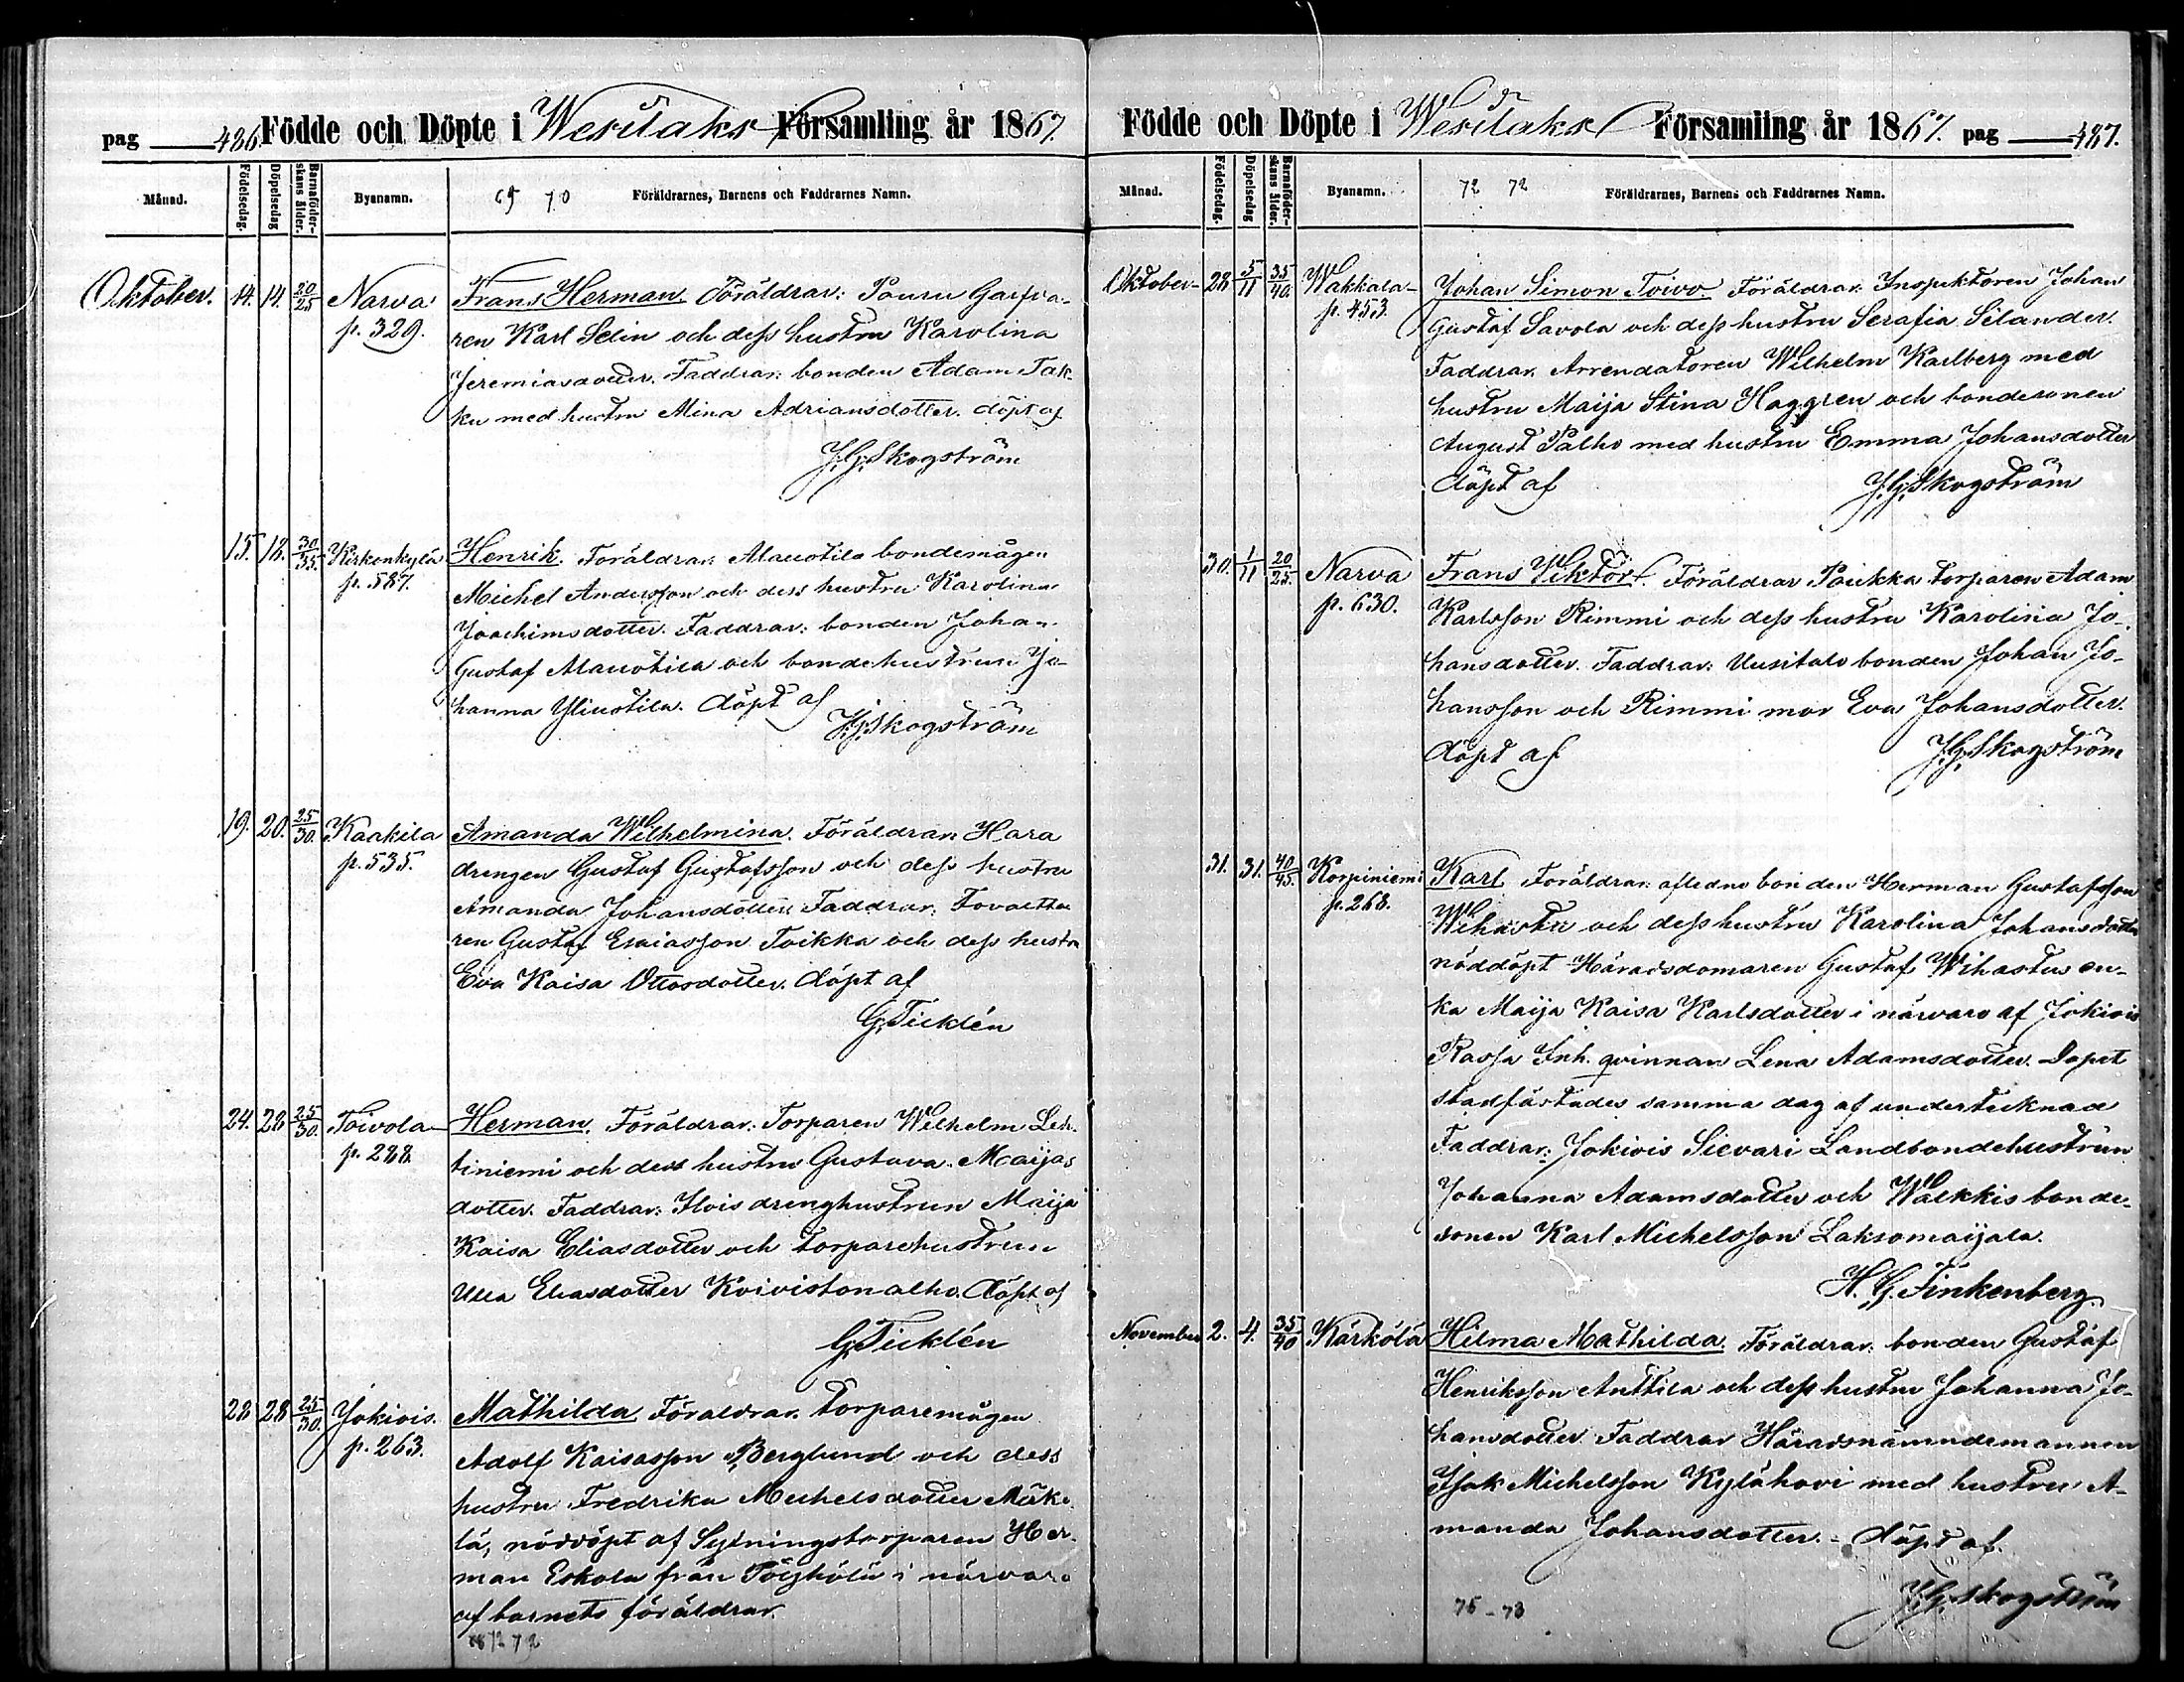 pag 486. Födde och Döpte i Wesilaks Församling år 1867.
Månad. Födelsedag. Döpelsedag Barnaföder-skans ålder. Byanamn. 69 70 Föräldrarnes, Barnens och Faddrarnes Namn.
Oktober. 14. 14. 20/25 Narva Frans Herman. Föräldrar: Pouru Garfva-
p. 329. ren Karl Selin och dess hustru Karolina
Jeremiasdotter. Faddrar: bonden Adam Tak-
ku med hustru Mina Adriansdotter. döpt af
J.G. Skogström
15. 18. 30/35. Kirkonkylä Henrik. Föräldrar: Alauotila bondemågen
p. 587. Michel Andersson och dess hustru Karolina
Joachimsdotter. Faddrar: bonden Johan
Gustaf Alauotila och bondehustrun Jo-
hanna Yliuotila. döpt af
J.G. Skogström
19. 20. 25/30. Kaakila Amanda Wilhelmina. Föräldrar: Hara
p. 535. drengen Gustaf Gustafsson och dess hustru
Amanda Johansdotter. Faddrar:
ren Gustaf Esaiasson Toikka och dess hustru
Eva Kaisa Ottosdotter. döpt af
G. Ticklén
24. 28 25/30. Toivola Herman. Föräldrar: Torparen Wilhelm Leh-
p. 288. tiniemi och dess hustru Gustava Maijas
dotter. Faddrar: drenghustrun Maija
Kaisa Eliasdotter och torparehustrun
Ulla Eliasdotter Koivistonalho. döpt af
G. Ticklén
28 28 25/30. Jokiois. Mathilda Föräldrar. torparemågen
p. 263. Adolf Kaisasson Berglund och dess
hustru Fredrika Michelsdotter Mäke-
lä, nöddöpt af Sytningstorparen Her-
man Eskola från i närvaro
af barnets föräldrar.
72 72
Födde och Döpte i Wesilaks Församling år 1867. pag 487.
Månad. Födelsedag. Döpelsedag Barnaföder-skans ålder. Byanamn. 72 72 Föräldrarnes, Barnens och Faddrarnes Namn.
Oktober 28 5/11 35/40. Wakkala Johan Simon Toivo. Föräldrar: Inspektoren Johan
p. 453. Gustaf Savola och dess hustru Serafia Silander.
Faddrar: Arrendatoren Wilhelm Karlberg med
hustru Maija Stina Haggren och bondesonen
August Palho med hustru Emma Johansdotter
döpt af J.G. Skogström
30. 1/11 20/25. Narva Frans Viktor. Föräldrar Paukka torparen Adam
p. 630. Karlsson Rimmi och dess hustru Karolina Jo-
hansdotter. Faddrar: Uusitalo bonden Johan Jo-
hansson och Rimmi mor Eva Johansdotter.
döpt af J.G. Skogström
31. 31. 40/45. Korpiniemi Karl Föräldrar: afledne bonden Herman Gustafsson
p. 268. Wihastu och dess hustru Karolina Johansdotter
nöddöpt Häradsdomaren Gustaf Wihastus en-
ka Maija Kaisa Karlsdotter i närvaro af Jokiois
Rassa Inh. qvinnan Lena Adamsdotter. Dopet
stadfästades samma dag af undertecknad
Faddrar: Jokiois Sievari Landbondehustrun
Johanna Adamsdotter och Walkkis bonde-
sonen Karl Michelsson Laksomaijala.
H. G. Finkenberg.
November 2. 4. 35/40 Kärkölä Hilma Mathilda. Föräldrar: bonden Gustaf
Henriksson Anttila och dess hustru Johanna Jo-
hansdotter. Faddrar Häradsnämndemannen
Isak Michelsson Kylähovi med hustru A-
manda Johansdotter. döpt af.
J.G. Skogström
75 - 73